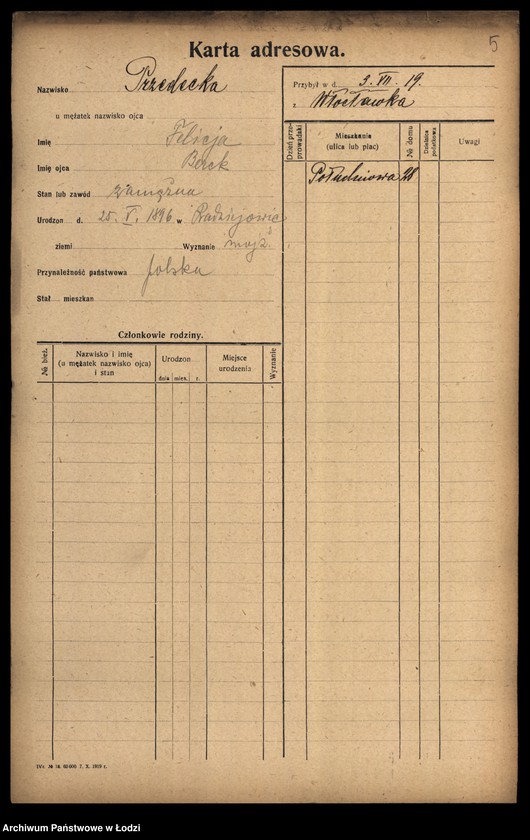 5
Karta adresowa.
Nazwisko Przedecka
u mężatek nazwisko ojca
Imię Felicja
Imię ojca Berek
Stan lub zawód zamężna
Urodzon d. 25. V. 1896 w Radziejowie
ziemi Wyznanie mojż.
Przynależność państwowa polska
Stał mieszkan
Członkowie rodziny.
№ bież.
Nazwisko i imię
(u mężatek nazwisko ojca)
i stan
Urodzon
dnia mies. r.
Miejsce
urodzenia
Wyznanie
Przybył w d. 3. VII. 19.
z Włocławka
Dzień prze-
prowadzki
Mieszkania
(ulica lub plac)
№ domu
Dzielnica
podatkowa
Uwagi
Południowa 28
7. X. 1919 r.
Archiwum Państwowe w Łodzi